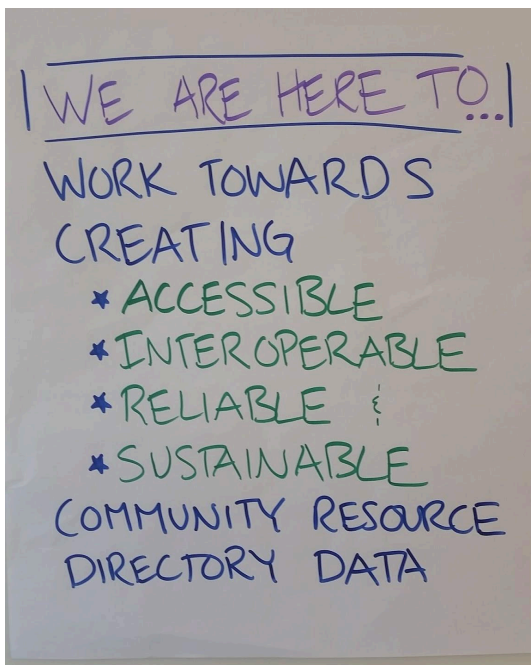 WE ARE HERE TO...
WORK TOWARDS
CREATING
★ ACCESSIBLE
★ INTEROPERABLE
★ RELIABLE &
★ SUSTAINABLE
COMMUNITY RESOURCE
DIRECTORY DATA